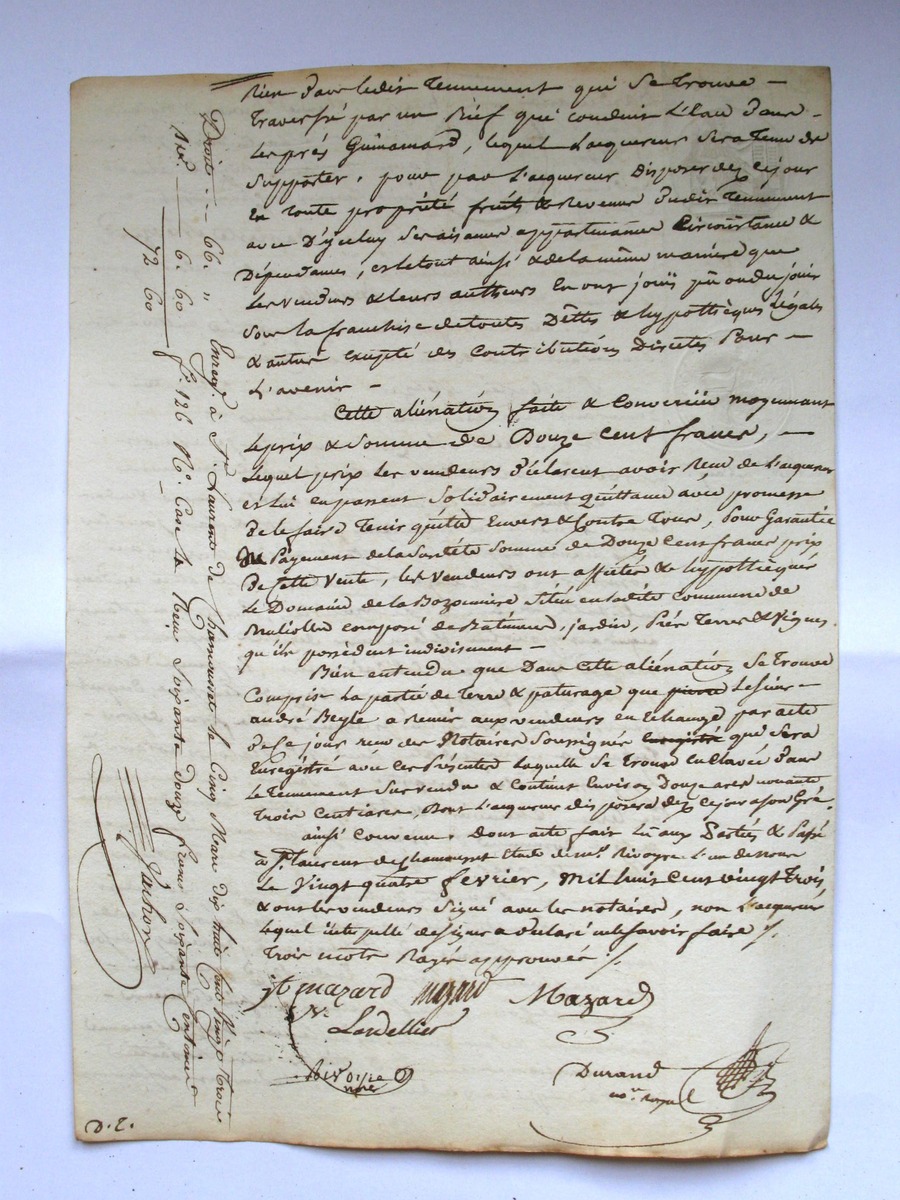 Rien dans ledit Tennement qui Se trouve
Traversé par un Bief qui conduit L'Eau dans
Les prés Guinamard, lequel L'acquereur Sera Tenu de
Supporter, pour par L'acquereur Disposer dez ce jour
En toute propriété fruits & Revenus dudit Tennement
avec D'yceluy Ses aisances appartenances Circonstances &
Dépendances, et le tout ainsi & de la même manière que
Les vendeurs & leurs autheurs En ont jouii pû ou du jouir
Sous la franchise de toutes Dêttes & hypothèques légales
& autres Excepté des Contributions Directes Pour
L'avenir
Cette aliénation faite & Convenüe moyennant
Le prix & Somme de Douze Cent francs,
Lequel prix Les vendeurs déclarent avoir Reçu de L'acquereur
et Lui en passent Solidairement quittance avec promesse
de le faire Tenir quitte Envers & Contre Tous, Pour Garantie
du Payement de la Susdite Somme de Douze Cent francs prix
de Cette Vente, les Vendeurs ont affectés & hypothequés
Le Domaine de la Bozonniere Située en ladite Commune de
Brulliolles composé de Batiments, jardin, Prés Terres & Vignes
qu'ils possèdent indivisement
Bien entendu que Dans Cette aliénation Se trouve
Comprise La partie de Terre & paturage que Le Sieur
andré Beyle a Remis aux vendeurs en Echange par acte
de ce jour reçu des Notaires Soussignés Enregistré qui Sera
Enregistré avec ces Présentes Laquelle Se trouve Enclavée dans
Le Tennement Sus vendu & Contient Environ Douze ares nonante
Trois Centiares, Dont L'acquereur disposera dez ce jour a Son Gré.
ainsi Convenu. Dont acte fait Lu aux Parties & Passé
à St Laurent de Chamousset Etude de Me Rivoyre L'un de nous
Le Vingt quatre fevrier, mil huit Cent vingt Trois
& ont les vendeurs Signé avec les notaires, non L'acquereur
Lequel interpellé de Signer a déclaré ne le Savoir faire
Trois mots Rayés approuvés
jt mazard mazard Mazard
Lardellier
Rivoire nore
Durand
nore Royal
Droits 66. "
10e. 6. 60
72 60
Enregé. à St. Laurent de Chamousset le Cinq Mars dix huit Cent Vingt trois
fo. 126 Ro. Case 1e Reçu Soixante Douze francs Soixante Centimes
Gachon
D. E.